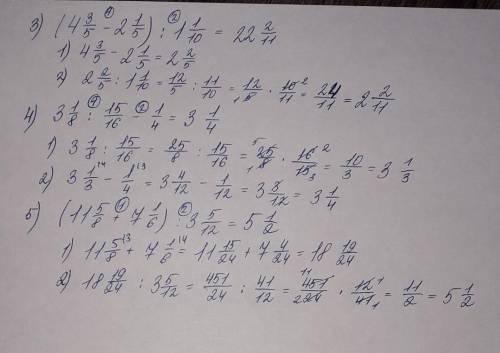 3) (4 3/5 - 2 1/5) : 1 1/10 = 22 2/11
1) 4 3/5 - 2 1/5 = 2 2/5
2) 2 2/5 : 1 1/10 = 12/5 : 11/10 = 12/5 · 10/11 = 24/11 = 2 2/11
4) 3 1/8 : 15/16 - 1/4 = 3 1/4
1) 3 1/8 : 15/16 = 25/8 : 15/16 = 25/8 · 16/15 = 10/3 = 3 1/3
2) 3 1/3 - 1/4 = 3 4/12 - 1/12 = 3 3/12 = 3 1/4
5) (11 5/8 + 7 1/6) : 3 5/12 = 5 1/2
1) 11 5/8 + 7 1/6 = 11 15/24 + 7 4/24 = 18 19/24
2) 18 19/24 : 3 5/12 = 451/24 : 41/12 = 451/24 · 12/41 = 11/2 = 5 1/2